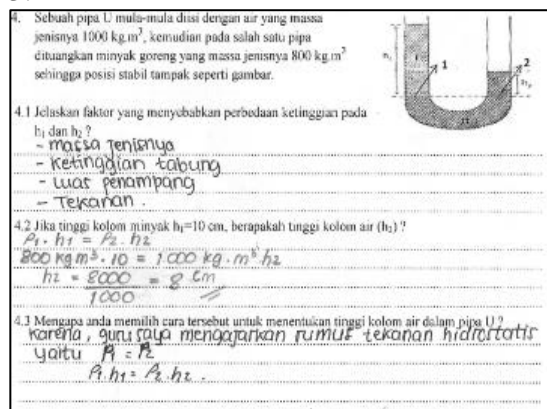 4. Sebuah pipa U mula-mula diisi dengan air yang massa
jenisnya 1000 kg.m³, kemudian pada salah satu pipa
dituangkan minyak goreng yang massa jenisnya 800 kg.m³
sehingga posisi stabil tampak seperti gambar.
1
2
4.1 Jelaskan faktor yang menyebabkan perbedaan ketinggian pada
h₁ dan h₂ ?
- massa jenisnya
- ketinggian tabung
- luas penampang
- Tekanan .
4.2 Jika tinggi kolom minyak h₁=10 cm, berapakah tinggi kolom air (h₂) ?
ρ₁ . h₁ = ρ₂ . h₂
800 kg m³ . 10 = 1000 kg . m³ h₂
h₂ = 8000 / 1000 = 8 cm
4.3 Mengapa anda memilih cara tersebut untuk menentukan tinggi kolom air dalam pipa U ?
karena, guru saya mengajarkan rumus tekanan hidrostatis
yaitu P₁ = P₂
ρ₁ . h₁ = ρ₂ . h₂ .